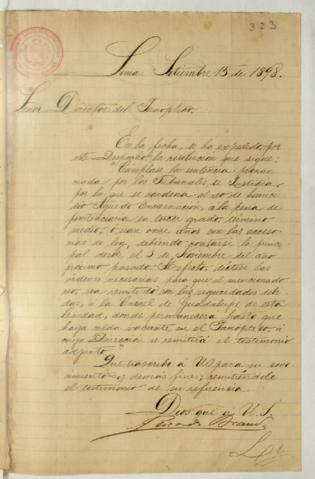 323
Lima, Setiembre 15 de 1898.
Señor Director del Panóptico.
En la fecha, se ha expedido por
este Despacho la resolucion que sigue:
"Cúmplase la sentencia pronun
ciada por los Tribunales de Justicia,
por la que se condena al reo de homici
dio Encarnación, á la pena de
penitenciaria en tercer grado, término
medio, ó sean once años con las acceso
rias de ley, debiendo contarse la prin
cipal desde el 3 de Noviembre del año
próximo pasado. Al efecto, díctese las
órdenes necesarias para que el mencionado
reo, sea remitido con las seguridades debi
das, á la Carcel de Guadalupe de esta
Ciudad, donde permanecerá hasta que
haya celda vacante en el Panóptico, á
cuya Direccion se remitirá el testimonio
adjunto."
Que trascribo á US para su cono
cimiento y demás fines; remitiéndole
el testimonio de su referencia.
Dios gue á U.S.
Ricardo